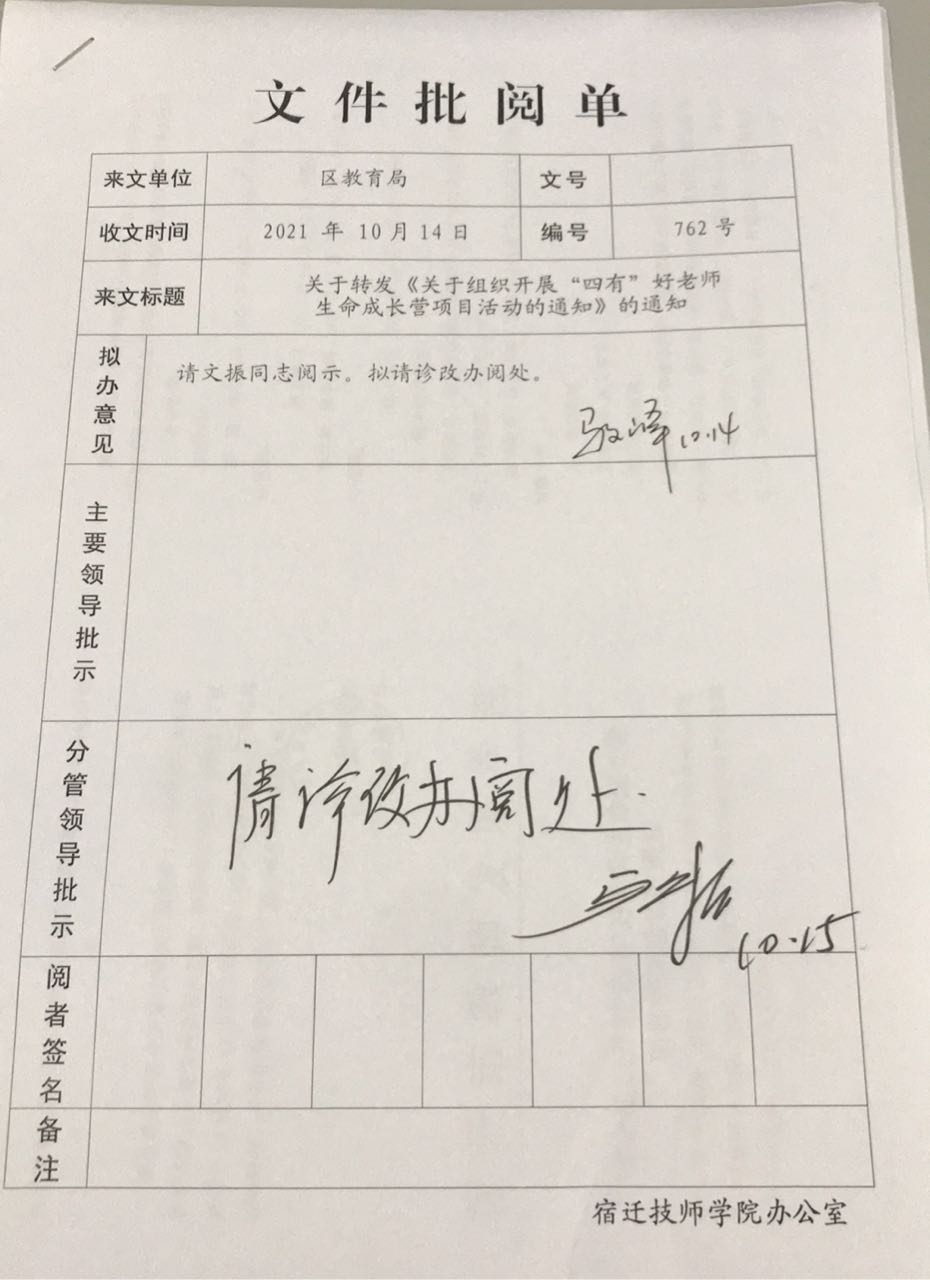 文件批阅单
来文单位 区教育局 文号
收文时间 2021 年 10 月 14 日 编号 762 号
来文标题 关于转发《关于组织开展“四有”好老师
生命成长营项目活动的通知》的通知
拟办意见 请文振同志阅示。拟请诊改办阅处。
10.14
主要领导批示
分管领导批示 请诊改办阅处.
10.15
阅者签名
备注
宿迁技师学院办公室